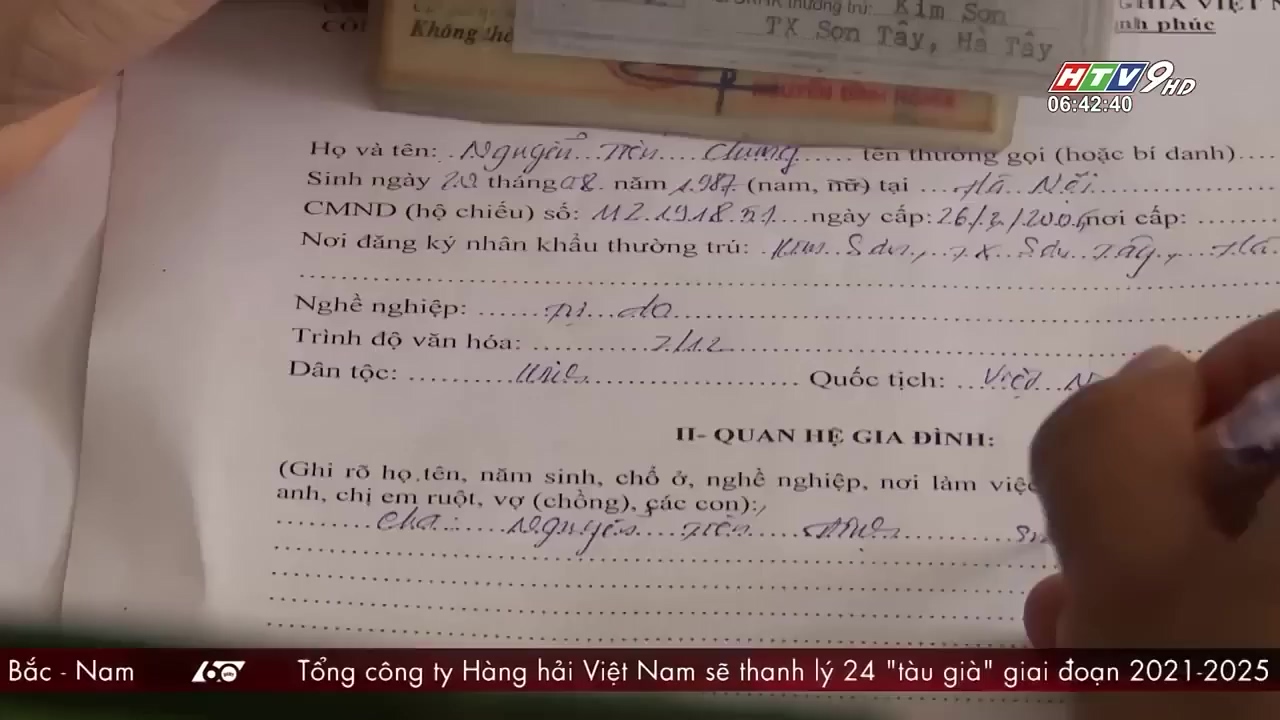 thường trú: Kim Sơn
TX Sơn Tây, Hà Tây
GHĨA VIỆT N
nh phúc
Không thờ
HTV9 HD
06:42:40
Họ và tên: Nguyễn Tiến Chung tên thường gọi (hoặc bí danh)
Sinh ngày 20 tháng 08 năm 1987 (nam, nữ) tại Hà Nội
CMND (hộ chiếu) số: ngày cấp: nơi cấp:
Nơi đăng ký nhân khẩu thường trú: Kim Sơn, TX Sơn Tây, Hà
Nghề nghiệp: Tự do
Trình độ văn hóa: 7/12
Dân tộc: Quốc tịch: Việt N
II- QUAN HỆ GIA ĐÌNH:
(Ghi rõ họ tên, năm sinh, chổ ở, nghề nghiệp, nơi làm việc
anh, chị em ruột, vợ (chồng), các con):
Cha: Nguyễn Tiến
Bắc - Nam 60 giây Tổng công ty Hàng hải Việt Nam sẽ thanh lý 24 "tàu già" giai đoạn 2021-2025